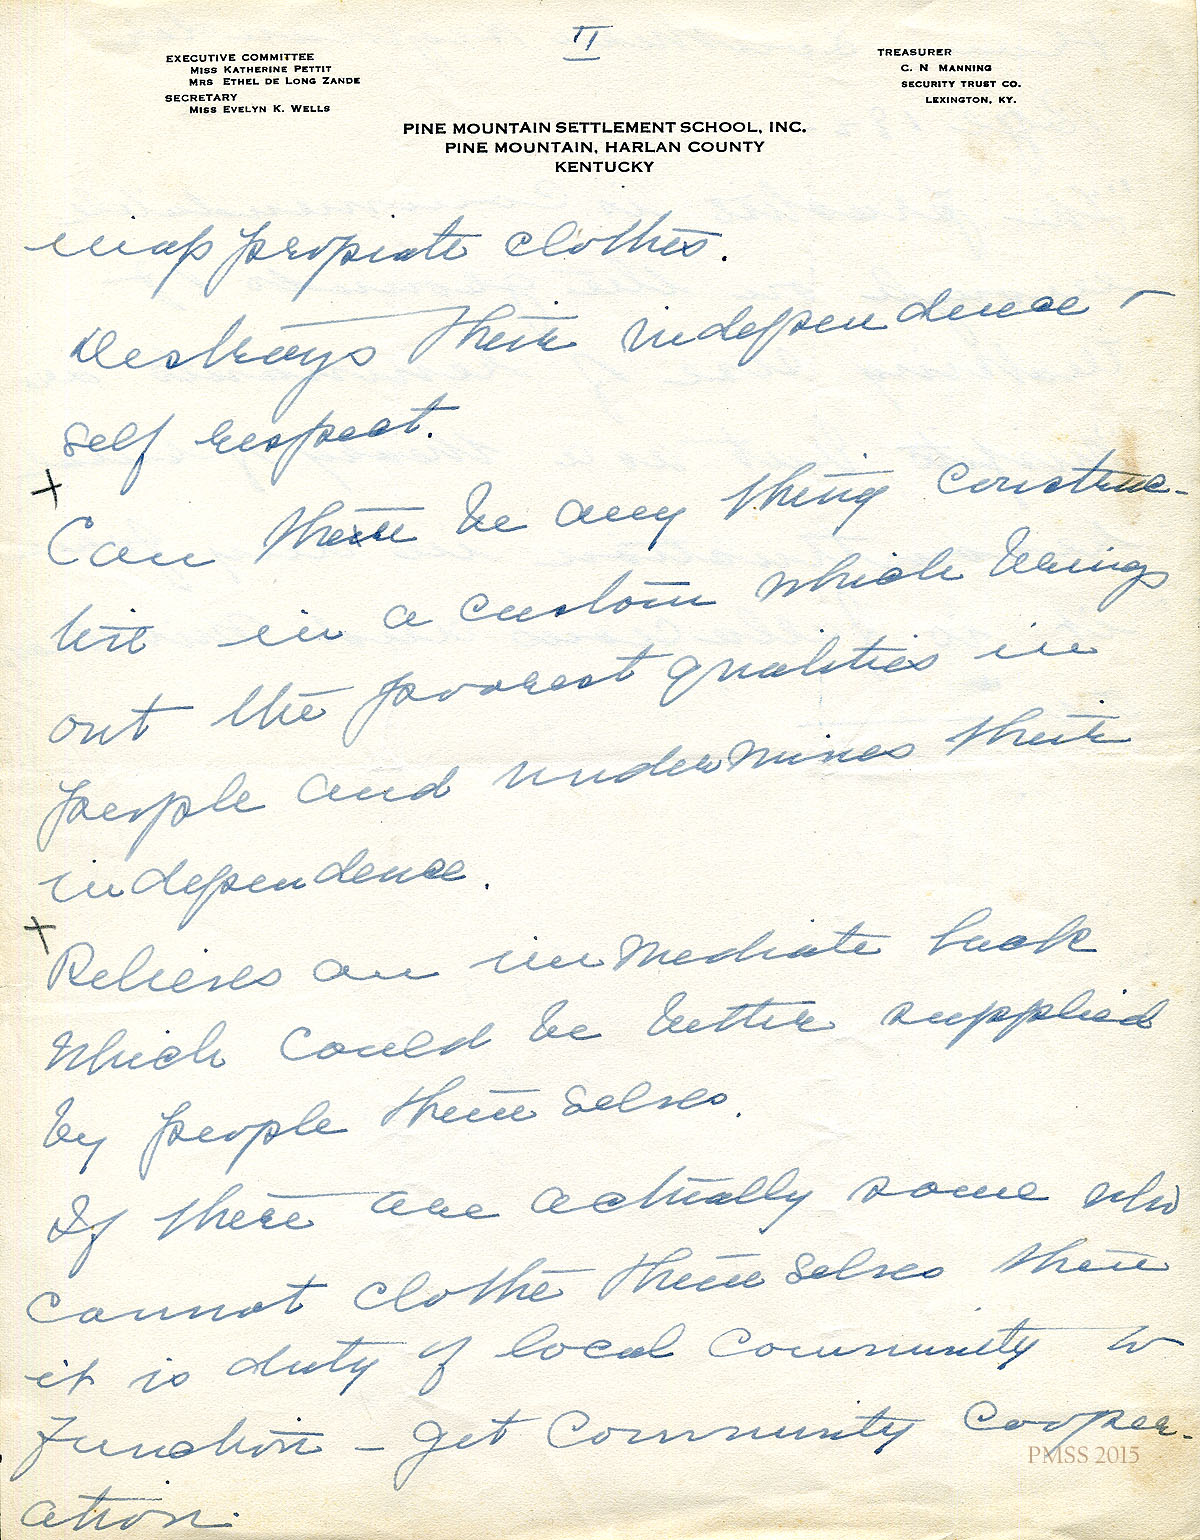 II
EXECUTIVE COMMITTEE
MISS KATHERINE PETTIT
MRS ETHEL DE LONG ZANDE
SECRETARY
MISS EVELYN K. WELLS
TREASURER
C. N MANNING
SECURITY TRUST CO.
LEXINGTON, KY.
PINE MOUNTAIN SETTLEMENT SCHOOL, INC.
PINE MOUNTAIN, HARLAN COUNTY
KENTUCKY
inappropiate clothes.
Destroys their independence –
self respect.
x
Can there be any thing construc-
tive in a custom which brings
out the poorest qualities in
people and undermines their
independence.
x
Relieves an immediate lack
which could be better supplied
by people themselves.
If there are actually some who
cannot clothe themselves then
it is duty of local community to
function – get community cooper-
ation.
PMSS 2015